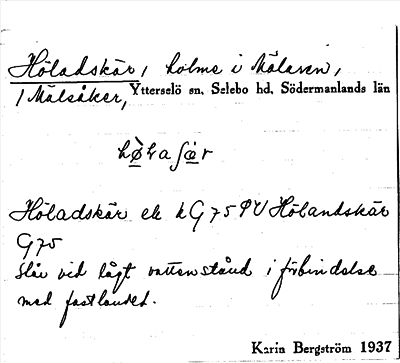 Höladskär, holme i Mälaren,
/ Mälsåker, Ytterselö sn. Selebo hd. Södermanlands län
Höladskär ek kG 75 PU Hölandskär
G 75
Slår vid lågt vattenstånd i förbindelse
med fastlandet.
Karin Bergström 1937